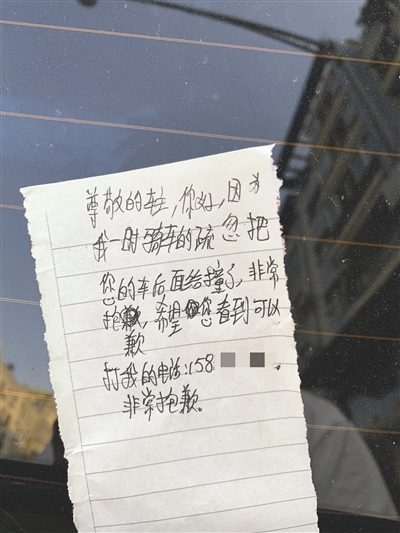 尊敬的车主,你好,因为
我一时骑车的疏忽把
您的车后面给撞了,非常
抱歉,希望您看到可以
歉
打我的电话:158
非常抱歉。